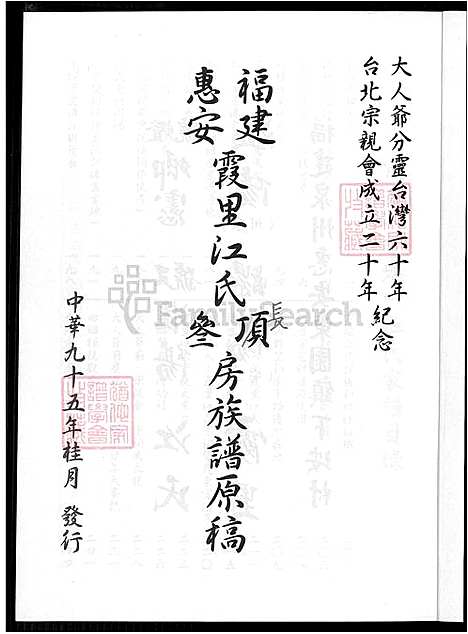 大人爺分靈台灣六十年
台北宗親會成立二十年
紀念
福建
惠安
霞里江氏
長
頂
叁
房族譜原稿
中華九十五年桂月 發行
FamilySearch